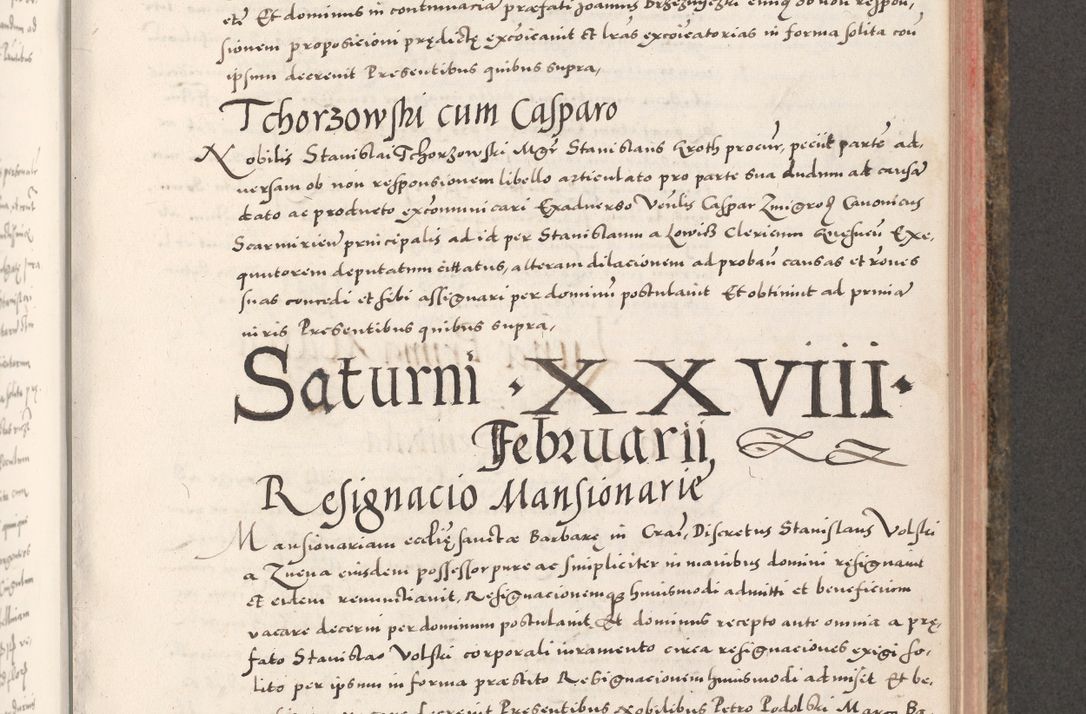 etē Et dominus in contumaciā præfati Joannis Brzezinszki eiusq́ ob non respon,
sionem proposicioni prędictę excōicauit Et lr̄as excōicatorias in forma solita cou
ipsum decreuit Presentibus quibus supra,
Tchorzowski cum Casparo
Nobilis Stanislai Tchorzowski Mgr̄ Stanislaus Groth procur̄, peciit partē ad,
versam ob non responsionem libello articulato pro parte sua dudum ad causā
dato ac producto excommunicari Exaduerso Venlis Caspar Zmigroḍ Canonicus
Scarmirien̄ principalis ad id per Stanislaum a Lowisz Clericum Exe,
quutorem deputatum cittatus, alteram dilacionem ad proban̄ causas et ro̅nes
suas concedi et sibi assignari per dominum postulauit Et obtinuit ad primā
iuris Presentibus quibus supra,
Saturni · XXVIII ·
Februarii,
Resignacio Mansionarie
Mansionariam eccl̄ię sanctæ Barbarę in Craē, Discretus Stanislaus Volski
a Zuena eiusdem possessor pure ac simpliciter in manibus domini resignauit
et eidem renunctiauit, Resignacionemq̨ huiusmodi admitti et beneficium
vacare decerni per dominum postulauit Et dominus recepto ante omnia a prę,
fato Stanislao Volski corporali iuramento circa resignaciones exigi so,
lito per ipsum in forma præstito Resignacionem huiusmodi admisit Et be,
decreuit Presentibus Nobilibus Petro Podolski Marco Ba,